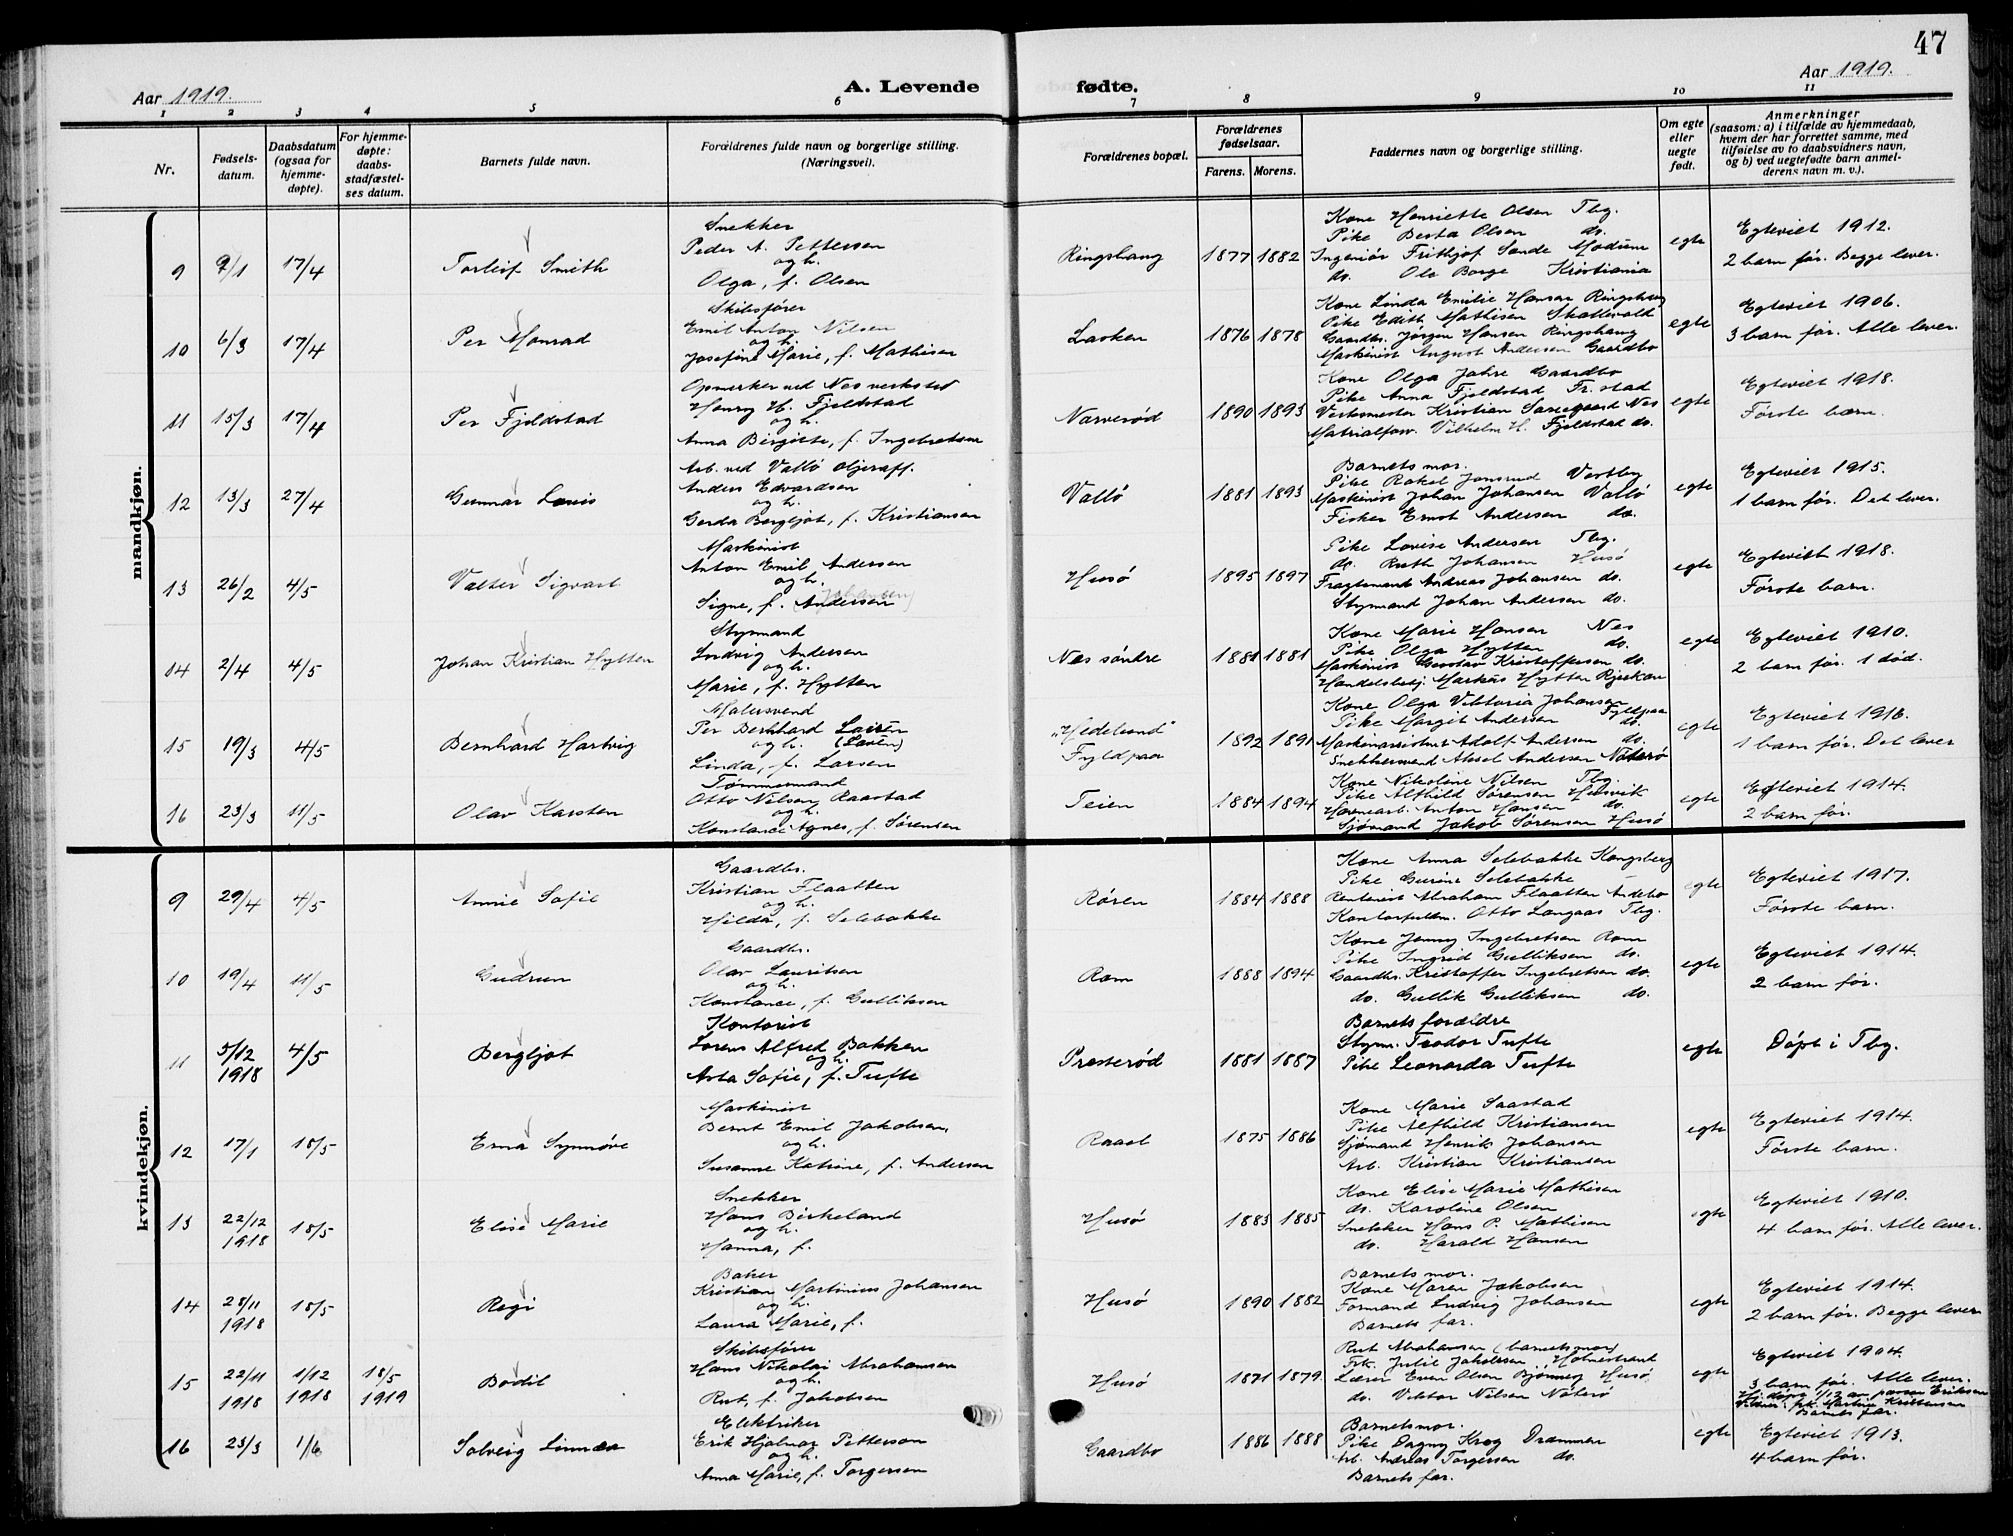 47
Aar 1919.
A. Levende fødte.
Aar 1919.
1 2 3 4 5 6 7 8 9 10 11
Nr.
Fødsels-
datum.
Daabsdatum
(ogsaa for
hjemme-
døpte).
For hjemme-
døpte:
daabs-
stadfæstel-
ses datum.
Barnets fulde navn.
Forældrenes fulde navn og borgerlige stilling.
(Næringsvei).
Forældrenes bopæl.
Forældrenes
fødselsaar.
Farens. Morens.
Faddernes navn og borgerlige stilling.
Om egte
eller
uegte
født.
Anmerkninger
(saasom: a) i tilfælde av hjemmedaab,
hvem der har forrettet samme, med
tilføielse av to daabsvidners navn,
og b) ved uegtefødte barn anmel-
derens navn m. v.).
mandkjøn.
9 9/1 17/4 Torleif Smith
Snekker
Peder A. Pettersen
og h.
Olga, f. Olsen
Ringshaug 1877 1882
Kone Henriette Olsen Tbg.
Pike Berta Olsen do.
Ingeniør Frithjof Sande Modum
do. Ole Borge Kristiania
egte
Egteviet 1912.
2 barn før. Begge lever.
10 6/3 17/4 Per Monrad
Skibsfører
Emil Anton Nilsen
og h.
Josefine Marie, f. Mathisen
Lasken 1876 1878
Kone Linda Emilie Hansen Ringshaug
Pike Edith Mathisen Skallevold
Gaardbr. Jørgen Hansen Ringshaug
Maskinist August Andersen Gaardbo
egte
Egteviet 1906.
3 barn før. Alle lever.
11 15/3 17/4 Per Fjeldstad
Opmerker ved Nes verksted
Henry H. Fjeldstad
og h.
Anna Birgitte, f. Ingebretsen
Narverød 1890 1893
Kone Olga Jahre Gaardbo
Pike Anna Fjeldstad Fr.stad
Verksmester Kristian Nes
Matrialforv. Vilhelm H. Fjeldstad do.
egte
Egteviet 1918.
Første barn.
12 13/3 27/4 Gunnar Louis
Arb. ved Vallø Oljeraff.
Anders Edvardsen
og h.
Gerda Bergljot, f. Kristiansen
Vallø 1881 1893
Barnets mor.
Pike Rakel Jonsrud Vestby
Maskinist Johan Johansen Vallø
Fisker Ernst Andersen do.
egte
Egteviet 1915.
1 barn før. Det lever.
13 26/2 4/5 Valter Sigvart
Maskinist
Anton Emil Andersen
og h.
Signe, f. Andersen (Johansen)
Husø 1895 1897
Pike Lovise Andersen Tbg.
do. Ruth Johansen Husø
Fragtemand Andreas Johansen do.
Styrmand Johan Andersen do.
egte
Egteviet 1918.
Første barn.
14 2/4 4/5 Johan Kristian Hytten
Styrmand
Ludvig Andersen
og h.
Marie, f. Hytten
Nes søndre 1881 1881
Kone Marie Hansen Nes
Pike Olga Hytten do.
Maskinist Gustav Kristoffersen do.
Handelsbetj. Markus Hytten Rjukan
egte
Egteviet 1910.
2 barn før. 1 død.
15 19/3 4/5 Bernhard Hartvig
Malersvend
Per Bernhard Laurén
og h. (Laurén)
Linda, f. Larsen
"Hedelund"
Fyldpaa
1892 1891
Kone Olga Viktoria Johansen Fyldpaa
Pike Margit Andersen do.
Maskinassistent Adolf Andersen do.
Snekkersvend Aksel Andersen Nøterø
egte
Egteviet 1916.
1 barn før. Det lever
16 23/3 11/5 Olav Karsten
Tømmermand
Otto Nilsen Raastad
og h.
Konstance Agnes, f. Sørensen
Teien 1884 1894
Kone Nikoline Nilsen Tbg.
Pike Alfhild Sørensen Husvik
Havnearb. Anton Hansen do.
Sjømand Jakob Sørensen Husø
egte
Egteviet 1914.
2 barn før.
kvindekjøn.
9 29/4 4/5 Annie Sofie
Gaardbr.
Kristian Flaatten
og h.
Hilda, f. Selebakke
Røren 1884 1888
Kone Anna Selebakke Kongsberg
Pike Gurine Selebakke
Rentenist Abraham Flaatten Andebo
Kontorfuldm. Otto Langaas Tbg.
egte
Egteviet 1917.
Første barn.
10 19/4 11/5 Gudrun
Gaardbr.
Olav Lauritsen
og h.
Konstance, f. Gulliksen
Rom 1888 1894
Kone Jenny Ingebretsen Rom
Pike Ingrid Gulliksen do.
Gaardbr. Kristoffer Ingebretsen do.
do. Gullik Gulliksen do.
egte
Egteviet 1914.
2 barn før.
11 5/12 1918 4/5 Bergljot
Kontorist
Lorens Alfred Bakken
og h.
Asta Sofie, f. Tufte
Presterød 1881 1887
Barnets forældre
Styrm. Teodor Tufte
Pike Leonarda Tufte
egte
Døpt i Tbg.
12 17/1 18/5 Erna Synnøve
Maskinist
Bernt Emil Jakobsen
og h.
Susanne Katrine, f. Andersen
Raael 1875 1886
Kone Marie Saastad
Pike Alfhild Kristiansen
Sjømand Henrik Johansen
Arb. Kristian Kristiansen
egte
Egteviet 1914.
Første barn.
13 22/12 1918 18/5 Elise Marie
Snekker
Hans Birkeland
og h.
Hanna, f.
Husø 1883 1885
Kone Elise Marie Mathisen
do. Karoline Olsen
Snekker Hans P. Mathisen
do. Harald Hansen
egte
Egteviet 1910.
4 barn før. Alle lever.
14 28/11 1918 18/5 Regi
Baker
Kristian Martinius Johansen
og h.
Laura Marie, f.
Husø 1890 1882
Barnets mor.
Kone Maren Jakobsen
Formand Ludvig Johansen
Barnets far.
egte
Egteviet 1914.
2 barn før. Begge lever
15 22/11 1918 1/12 1918 18/5 1919 Bodil
Skibsfører
Hans Nikolai Abrahamsen
og h.
Rut, f. Jakobsen
Husø 1871 1879.
Rut Abrahamsen (barnets mor)
Frk. Julie Jakobsen, Holmestrand
Lærer Even Olsen Husø
do. Viktor Nilsen Nøterø
egte
Egteviet 1904.
3 barn før. Alle lever.
Hj. døpt 1/12 av pastor Eriksen
Vidner: frk. Martine Kristensen
Barnets far.
16 23/3 1/6 Solveig Linnea
Elektriker
Erik Hjalmar Petterson
og h.
Anna Marie, f. Torgersen
Gaardbo 1886 1888
Barnets mor.
Pike Dagny Krog Drammen
Arb. Andreas Torgersen do.
Barnets far.
egte
Egteviet 1913.
4 barn før.